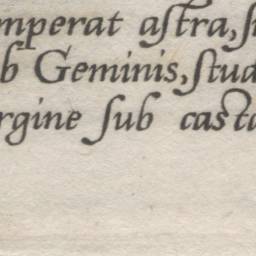 mperat aſtra, ſu
b Geminis, ſtud
rgine ſub caſta